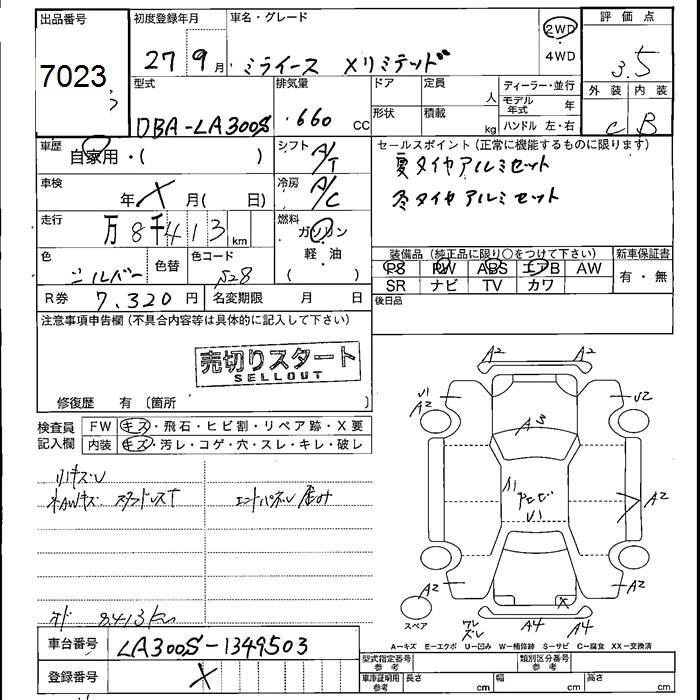 出品番号 初度登録年月 車名・グレード 2WD 評価点
7023 27 9月 ミライース Xリミテッド ・4WD 3.5
型式 排気量 ドア 定員 人 ディーラー・並行 外装 内装
DBA-LA300S ・660 CC 形状 積載 kg モデル年式 年 C B
ハンドル 左・右
車歴 自家用・( ) シフト A/T セールスポイント(正常に機能するものに限ります)
夏タイヤアルミセット
車検 年X月( 日) 冷房 A/C 冬タイヤアルミセット
走行 万8千413km 燃料 ガソリン
軽油
( )
色 シルバー 色替 色コード S28
装備品(純正品に限り○をつけて下さい) 新車保証書
PS PW ABS エアB AW 有・無
SR ナビ TV カワ
R券 7,320円 名変期限 月 日 後日品
注意事項申告欄(不具合内容等は具体的に記入して下さい)
売切りスタート
SELLOUT
修復歴 有 〔箇所 〕
検査員 FW キズ・飛石・ヒビ割・リペア跡・X要
記入欄 内装 キズ・汚レ・コゲ・穴・スレ・キレ・破レ
エンドパネル
8413km
A2 A2
V1 A2 U2
A3
A1 V1
A2
A2 A2
X
スペア A4 A4
A-キズ E-エクボ U-凹み W-補修跡 S-サビ C-腐食 XX-交換済
車台番号 LA300S-1349503
型式指定番号 参考 類別区分番号 参考
登録番号 X
車庫証明用 参考 長さ cm 幅 cm 高さ cm